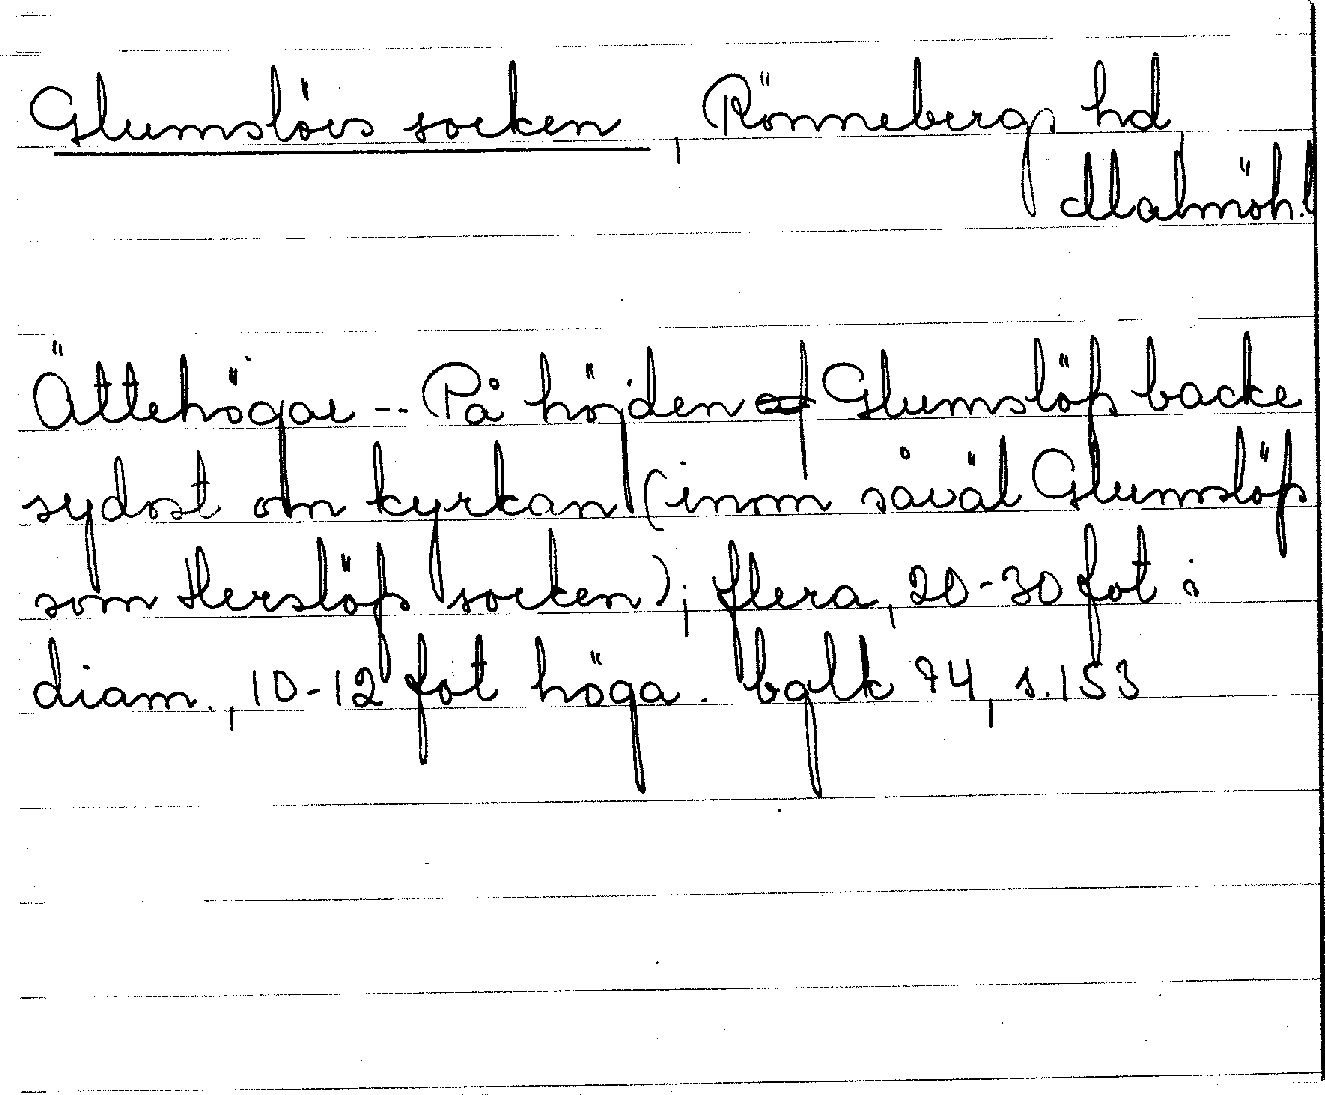 Glumslövs socken, Rönnebergs hd,
Malmöh.l
Ättehögar -- På höjden af Glumslöfs backe
sydost om kyrkan (inom såväl Glumslöfs
som Herslöfs socken); flera, 20-30 fot i
diam., 10-12 fot höga. bglk 74, s.153